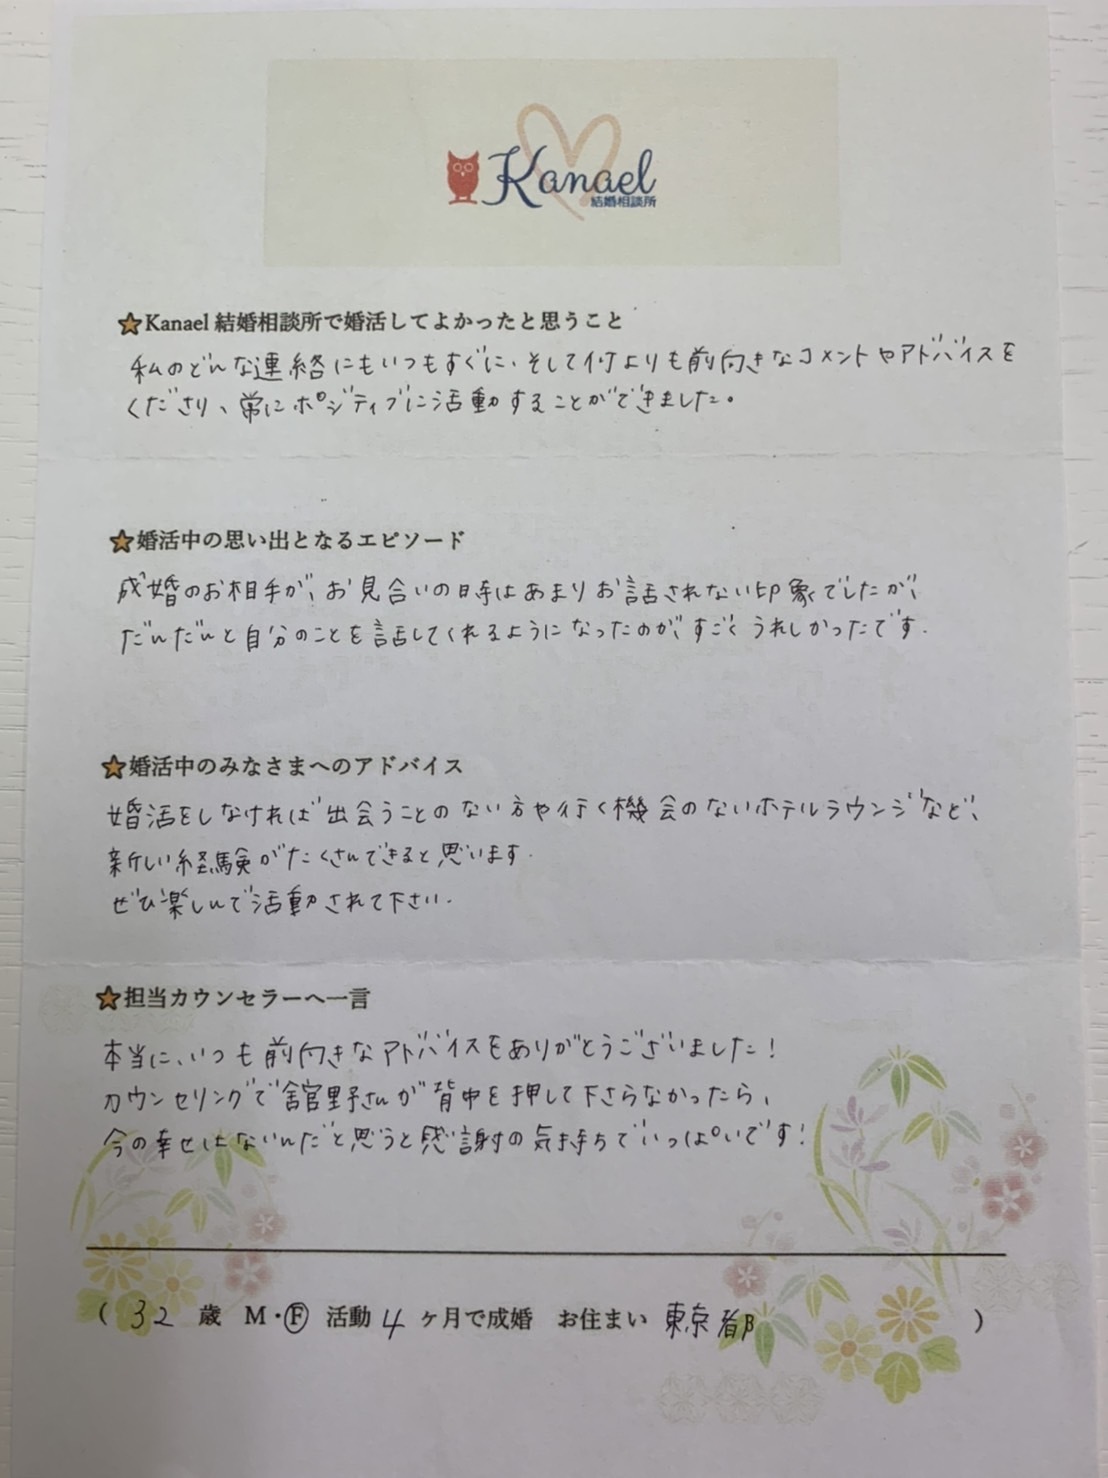 Kanael
結婚相談所
Kanael 結婚相談所で婚活してよかったと思うこと
私のどんな連絡にもいつもすぐに、そして何よりも前向きなコメントやアドバイスを
くださり、常にポジティブに活動することができました。
婚活中の思い出となるエピソード
成婚のお相手が、お見合いの時はあまりお話されない印象でしたが、
だんだんと自分のことを話してくれるようになったのが、すごくうれしかったです.
婚活中のみなさまへのアドバイス
婚活をしなければ出会うことのない方や行く機会のないホテルラウンジなど、
新しい経験がたくさんできると思います.
ぜひ楽しんで活動されて下さい.
担当カウンセラーへ一言
本当に、いつも前向きなアドバイスをありがとうございました!
カウンセリングで舘野さんが背中を押して下さらなかったら、
今の幸せはないんだと思うと感謝の気持ちでいっぱいです!
( 32 歳 M・F 活動 4 ヶ月で成婚 お住まい 東京都 )